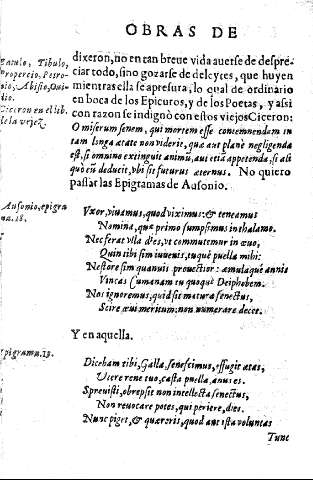 OBRAS DE
gatulo, Tibulo,
ropercio, Petro-
io, Abisio, Oui-
dio.
Ciceron en el lib.
de la vejez.
dixeron, no en tan breue vida auerse de despre-
ciar todo, sino gozarse de deleytes, que huyen
mientras ella se apresura, lo qual de ordinario
en boca de los Epicuros, y de los Poetas, y assi
con razon se indignò con estos viejos Ciceron:
O miserum senem, qui mortem esse contemnendam in
tam longa ætate non viderit, quæ aut planè negligenda
est, si omnino extinguit animũ, aut etiã appetenda, si ali
quò eũ deducit, vbi sit futurus æternus. No quiero
passar las Epigramas de Ausonio.
Ausonio, epigra
ma. 18.
Vxor, viuamus, quod viximus: & teneamus
Nomina, quæ primo sumpsimus in thalamo.
Nec ferat vlla dies, vt commutemur in æuo,
Quin tibi sim iuuenis, tuque puella mihi:
Nestore sim quamuis prouectior: æmulaque annis
Vincas Cumanam tu quoque Deiphoben.
Nos ignoremus, quid sit matura senectus,
Scire æui meritum: non numerare decet.
Y en aquella.
epigrama, 13.
Dicebam tibi, Galla, senescimus, effugit ætas,
Vtere rene tuo, casta puella, anus es.
Spreuisti, obrepsit non intellecta senectus,
Non reuocare potes, qui periere, dies.
Nunc piget, & quæreris, quod non ista voluntas
Tunc